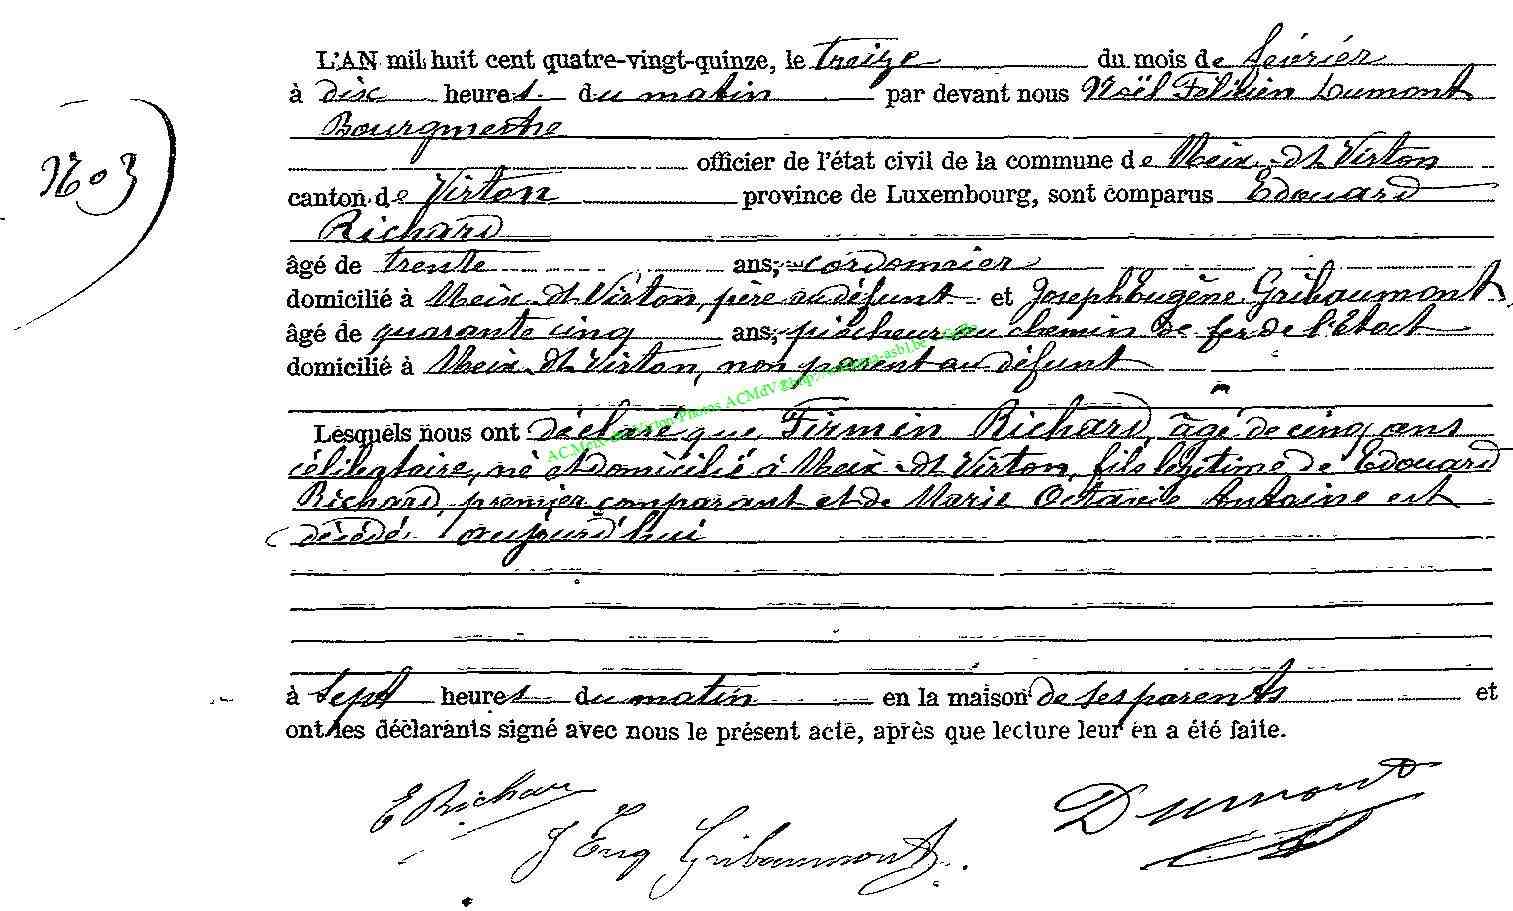 L'AN mil huit cent quatre-vingt-quinze, le treize du mois de février
à dix heures du matin par devant nous Noël Félicien Dumont
Bourgmestre
No 3
officier de l'état civil de la commune de Meix-dt Virton
canton de Virton province de Luxembourg, sont comparus Edouard
Richard
âgé de trente ans, cordonnier
domicilié à Meix-dt Virton, père au défunt et Joseph Eugène Gribaumont,
âgé de quarante cinq ans, piocheur au chemin de fer de l'Etat
domicilié à Meix-dt Virton, non parent au défunt
ACMeix-dt-Virton-Photos ACMdV
Lesquels nous ont déclaré que Firmin Richard, âgé de cinq ans
célibataire, né et domicilié à Meix-dt Virton, fils légitime de Edouard
Richard, premier comparant et de Marie Octavie Antoine est
décédé aujourd'hui
à sept heures du matin en la maison de ses parents et
ont les déclarants signé avec nous le présent acte, après que lecture leur en a été faite.
E Richard
J Eug Gribaumont
Dumont